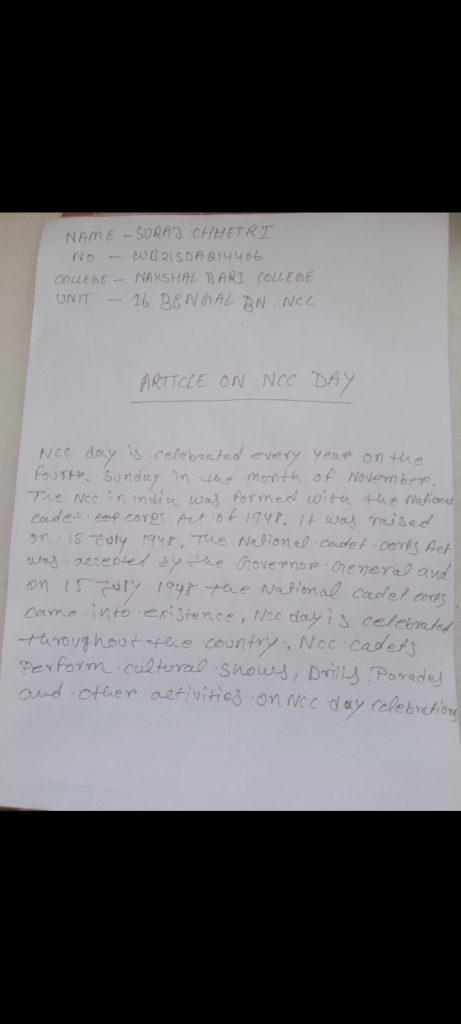 NAME - SURAJ CHHETRI
NO - WB21SDA914406
COLLEGE - NAKSHAL BARI COLLEGE
UNIT - 16 BENGAL BN. NCC
ARTICLE ON NCC DAY
NCC day is celebrated every year on the
fourth Sunday in the month of November.
The NCC in India was formed with the National
cadet corps Act of 1948. It was raised
on 15 July 1948, The National cadet corps Act
was accepted by the Governor General and
on 15 July 1948 the National cadet corps
came into existence, Ncc day is celebrated
throughout the country. NCC cadets
Perform cultural shows, Drills, Parades
and other activities on NCC day celebrations